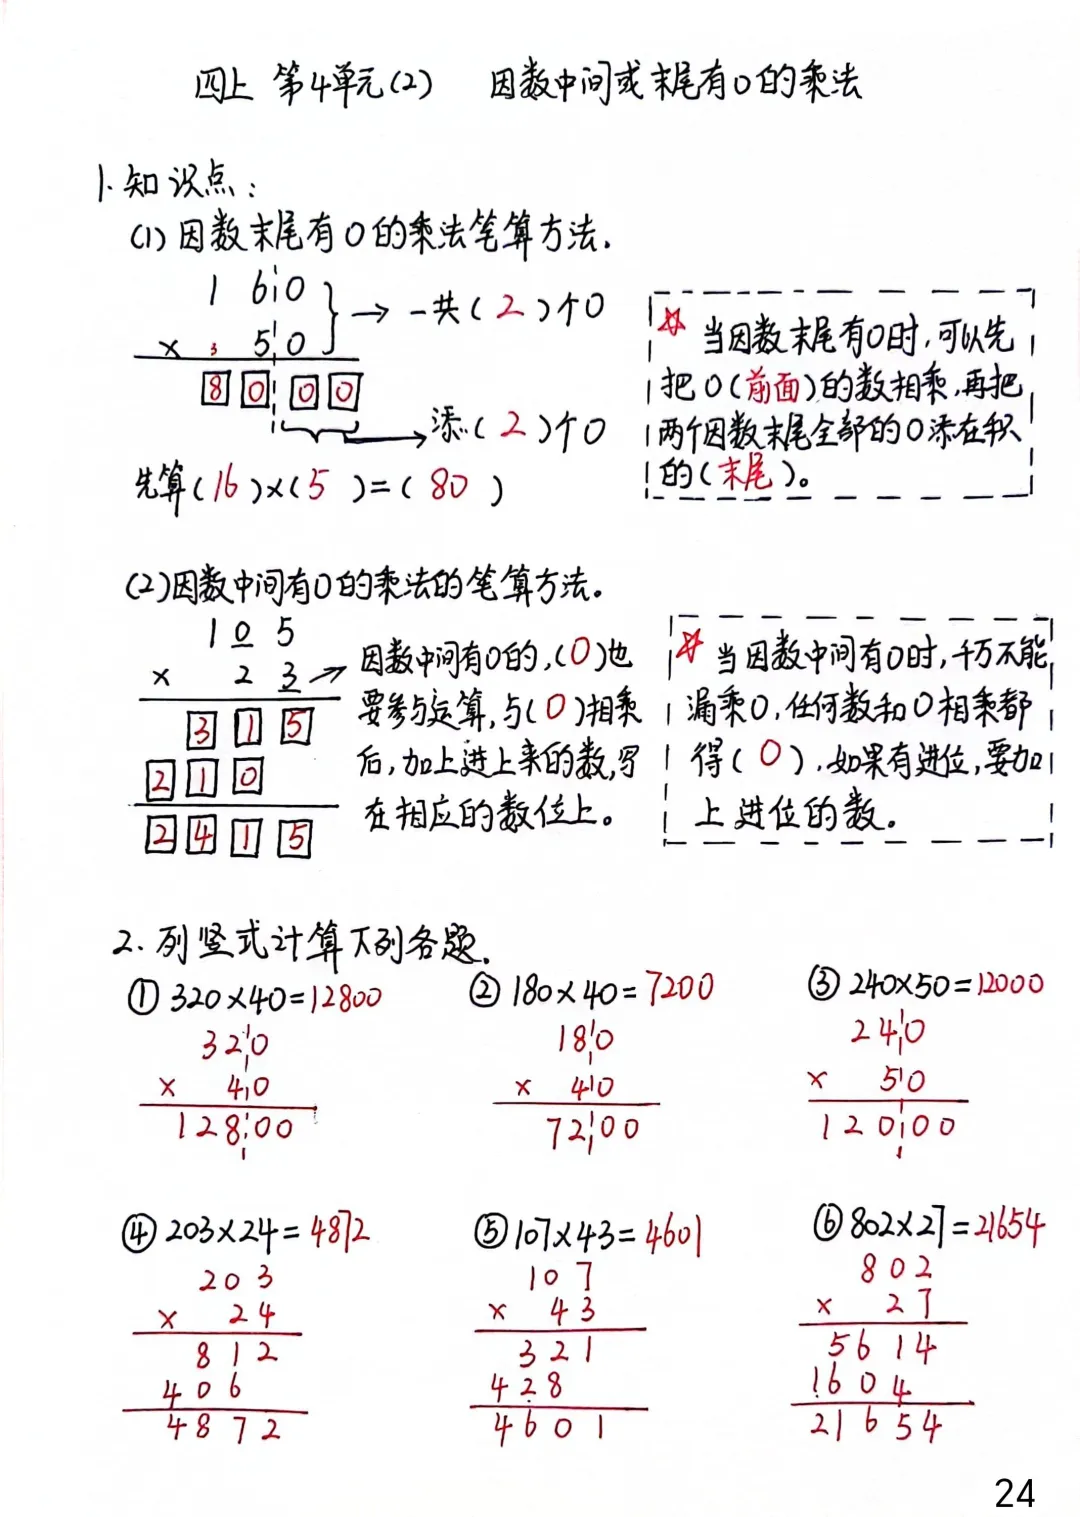 四上 第4单元(2) 因数中间或末尾有0的乘法
1.知识点:
(1)因数末尾有0的乘法笔算方法.
1 6 0
× 3 5 0
8 0 0 0
→ 一共(2)个0
→ 添(2)个0
先算(16)×(5)=(80)
☆ 当因数末尾有0时,可以先
把0(前面)的数相乘,再把
两个因数末尾全部的0添在积
的(末尾)。
(2)因数中间有0的乘法的笔算方法。
1 0 5
× 2 3 →
3 1 5
2 1 0
2 4 1 5
因数中间有0的,(0)也
要参与运算,与(0)相乘
后,加上进上来的数,写
在相应的数位上。
☆ 当因数中间有0时,千万不能
漏乘0,任何数和0相乘都
得(0),如果有进位,要加
上进位的数。
2.列竖式计算下列各题.
① 320×40=12800
320
× 40
12800
② 180×40=7200
180
× 40
7200
③ 240×50=12000
240
× 50
12000
④ 203×24=4872
203
× 24
812
406
4872
⑤ 107×43=4601
107
× 43
321
428
4601
⑥ 802×27=21654
802
× 27
5614
1604
21654
24